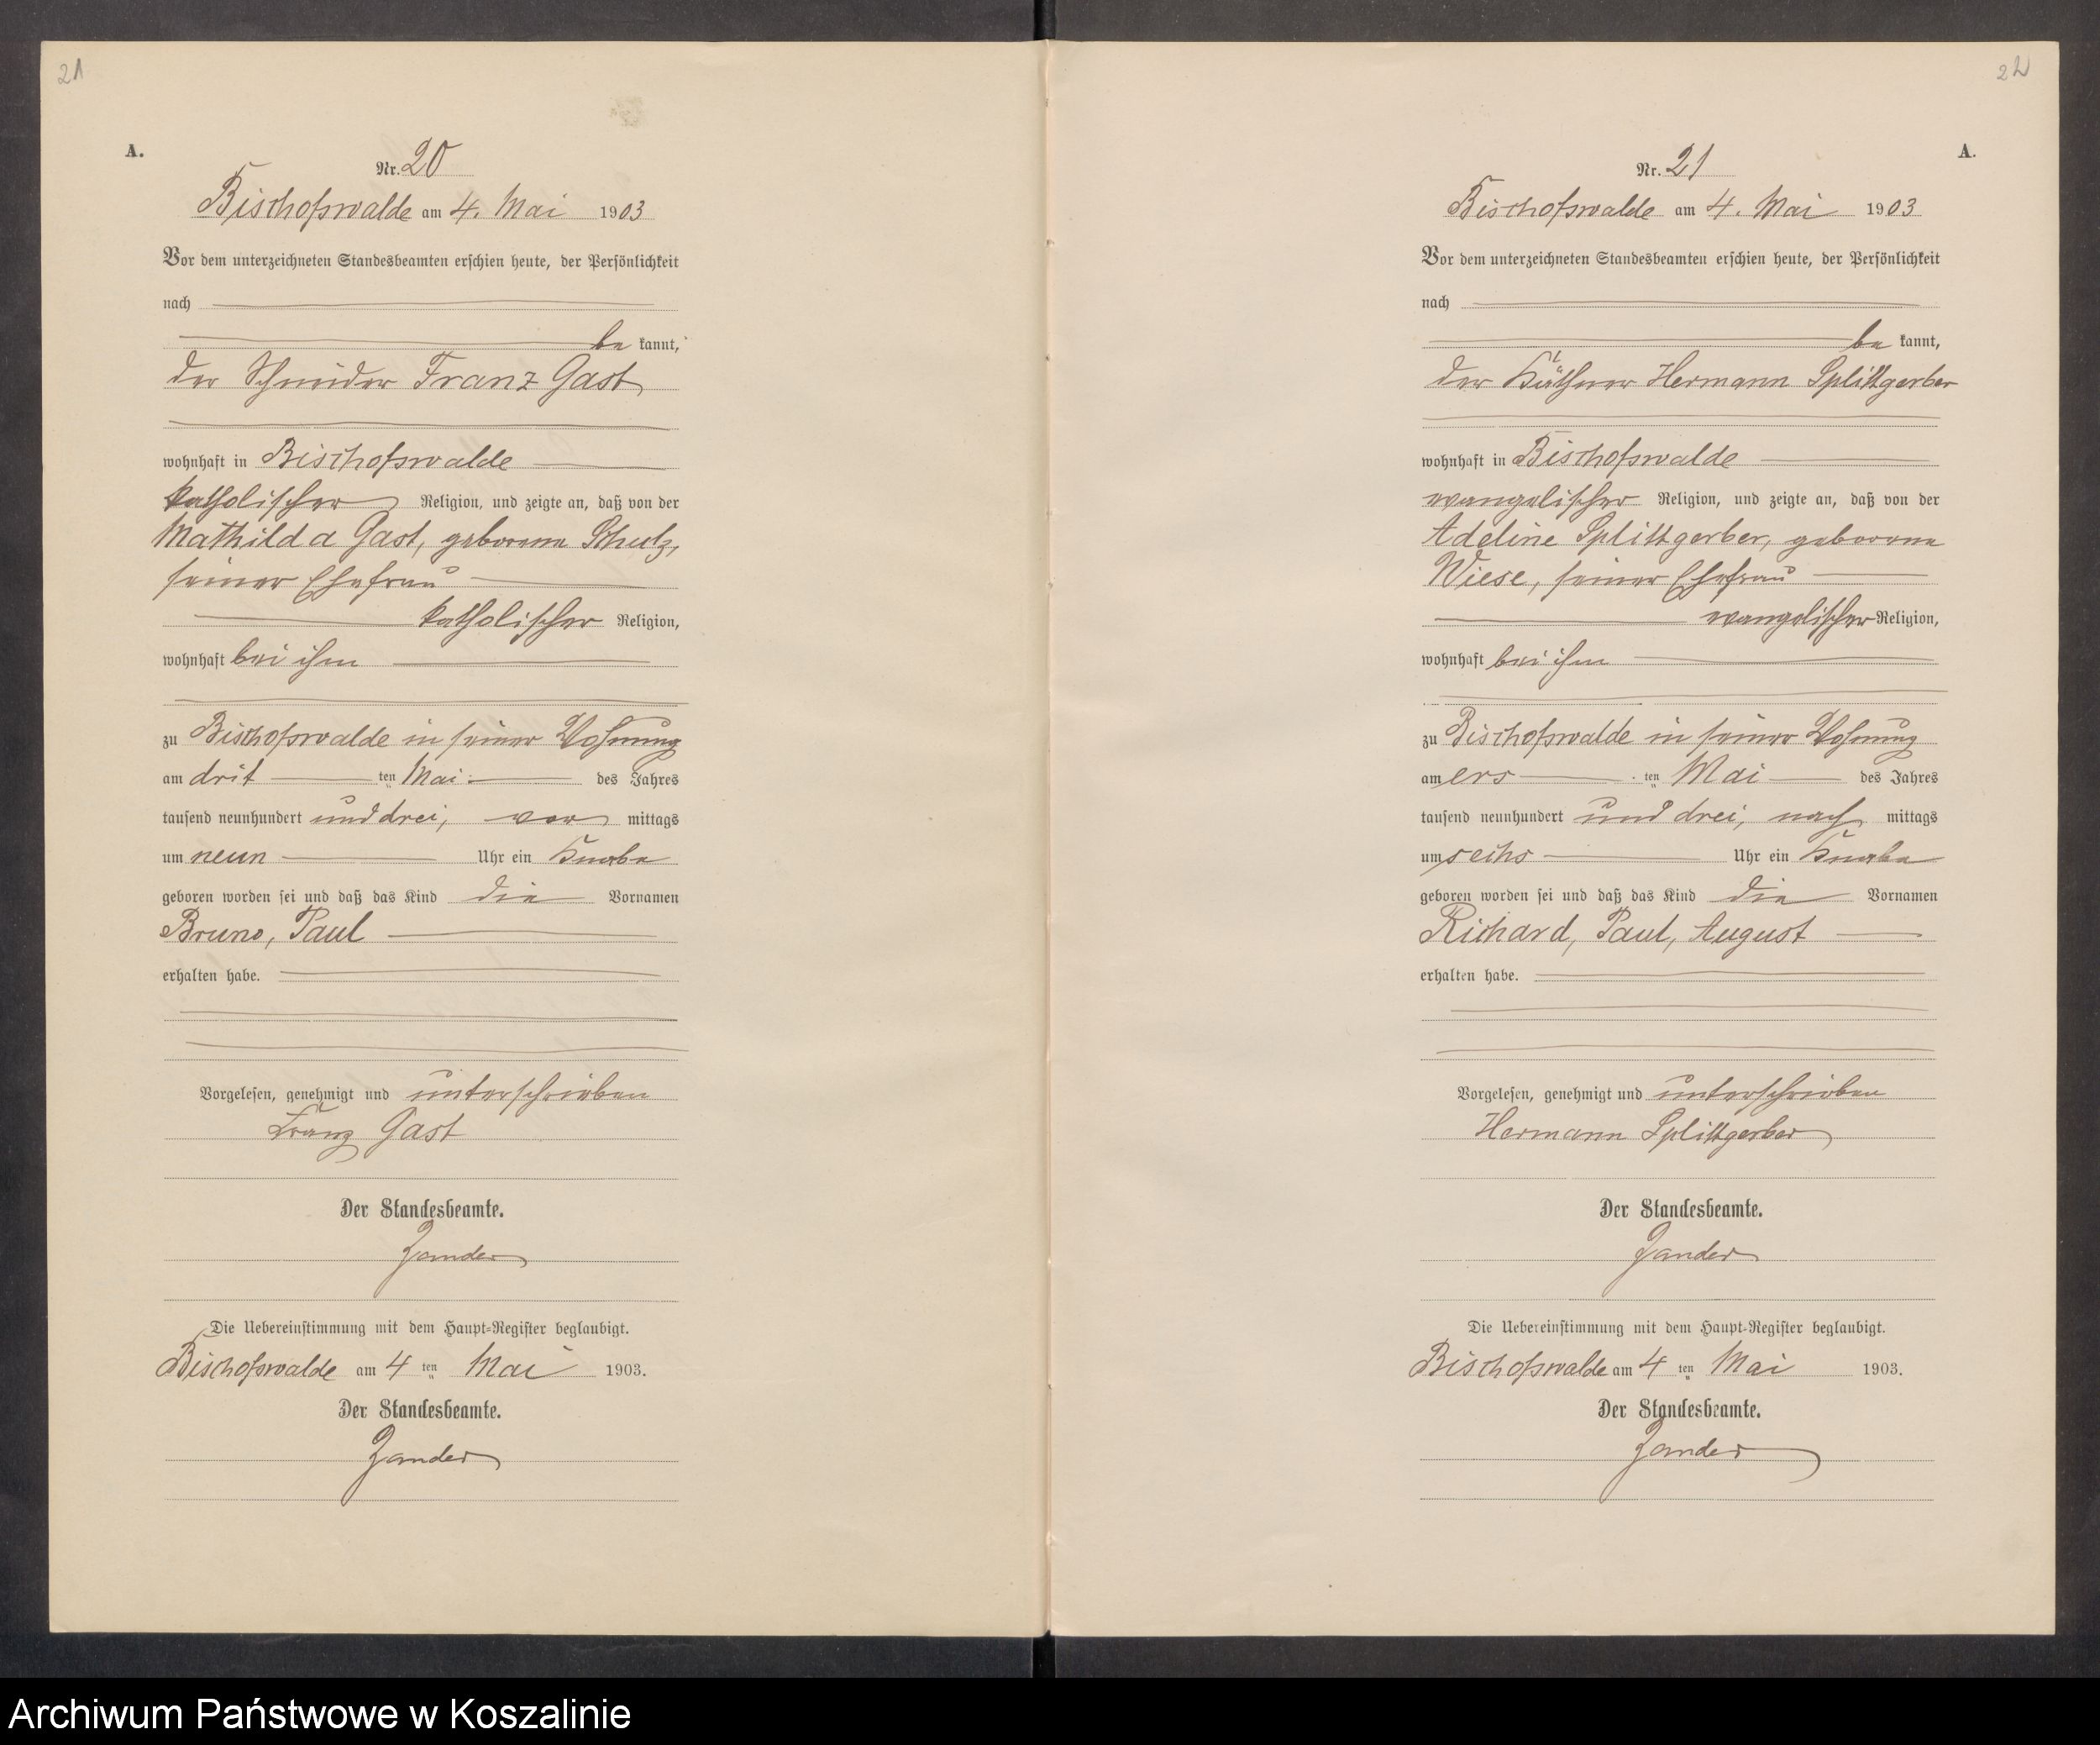 21
A.
Nr. 20
Bischofswalde am 4. Mai 1903
Vor dem unterzeichneten Standesbeamten erschien heute, der Persönlichkeit
nach
be kannt,
der Schneider Franz Gast
wohnhaft in Bischofswalde
katholischer Religion, und zeigte an, daß von der
Mathilda Gast, geborene Schulz,
seiner Ehefrau
katholischer Religion,
wohnhaft bei ihm
zu Bischofswalde in seiner Wohnung
am drit ten Mai des Jahres
tausend neunhundert und drei, vor mittags
um neun Uhr ein Knabe
geboren worden sei und daß das Kind die Vornamen
Bruno, Paul
erhalten habe.
Vorgelesen, genehmigt und unterschrieben
Franz Gast
Der Standesbeamte.
Zander
Die Uebereinstimmung mit dem Haupt-Register beglaubigt.
Bischofswalde am 4 ten Mai 1903.
Der Standesbeamte.
Zander
22
A.
Nr. 21
Bischofswalde am 4. Mai 1903
Vor dem unterzeichneten Standesbeamten erschien heute, der Persönlichkeit
nach
be kannt,
der Käthner Hermann Splittgerber
wohnhaft in Bischofswalde
evangelischer Religion, und zeigte an, daß von der
Adeline Splittgerber, geborene
Wiese, seiner Ehefrau
evangelischer Religion,
wohnhaft bei ihm
zu Bischofswalde in seiner Wohnung
am ers ten Mai des Jahres
tausend neunhundert und drei, nach mittags
um sechs Uhr ein Knabe
geboren worden sei und daß das Kind die Vornamen
Richard, Paul, August
erhalten habe.
Vorgelesen, genehmigt und unterschrieben
Hermann Splittgerber
Der Standesbeamte.
Zander
Die Uebereinstimmung mit dem Haupt-Register beglaubigt.
Bischofswalde am 4 ten Mai 1903.
Der Standesbeamte.
Zander
Archiwum Państwowe w Koszalinie